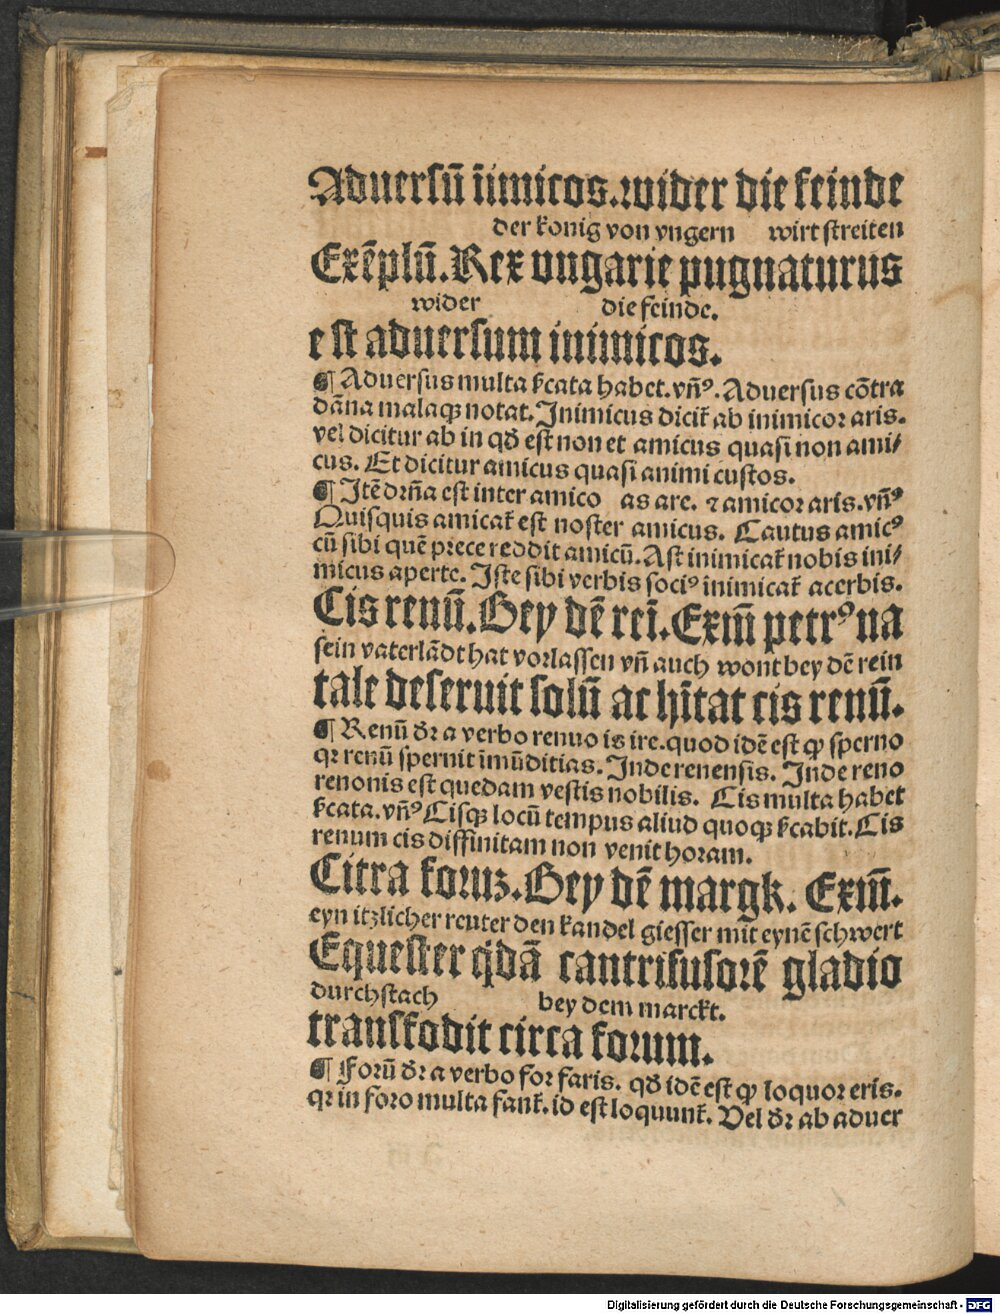 Aduersũ iĩmicos. wider die feinde
der konig von vngern wirt streiten
Exẽplũ. Rex vngarie pugnaturus
wider die feinde.
est aduersum inimicos.
¶ Aduersus multa ſcata habet. vñꝰ. Aduersus cõtra
dãna malaqꝫ notat. Inimicus dicit̃ ab inimicor aris.
vel dicitur ab in qđ est non et amicus quasi non ami/
cus. Et dicitur amicus quasi animi custos.
¶ Itẽ drña est inter amico as are. ⁊ amicor aris. vñꝰ
Quisquis amicat̃ est noster amicus. Cautus amicꝰ
cũ sibi quẽ prece reddit amicũ. Ast inimicat̃ nobis ini/
micus aperte. Iste sibi verbis sociꝰ inimicat̃ acerbis.
Cis renũ. Bey dẽ reĩ. Exm̃ petrꝰ na
sein vaterlãdt hat vorlassen vñ auch wont bey dẽ rein
tale deseruit solũ ac hĩtat cis renũ.
¶ Renũ dr̃ a verbo renuo is ire. quod idẽ est ꝙ sperno
qꝛ renũ spernit ĩmũditias. Inde renensis. Inde reno
renonis est quedam vestis nobilis. Cis multa habet
ſcata. vñꝰ Cisqꝫ locũ tempus aliud quoqꝫ ſcabit. Cis
renum cis diffinitam non venit horam.
Citra foruꝫ. Bey dẽ margk. Exm̃.
eyn itzlicher reuter den kandel giesser mit eynẽ schwert
Equester qdã cantrifusorẽ gladio
durchstach bey dem marckt.
transfodit circa forum.
¶ Forũ dr̃ a verbo for faris. qđ idẽ est ꝙ loquor eris.
qꝛ in foro multa fant̃. id est loquunt̃. Vel dr̃ ab aduer
Digitalisierung gefördert durch die Deutsche Forschungsgemeinschaft - DFG